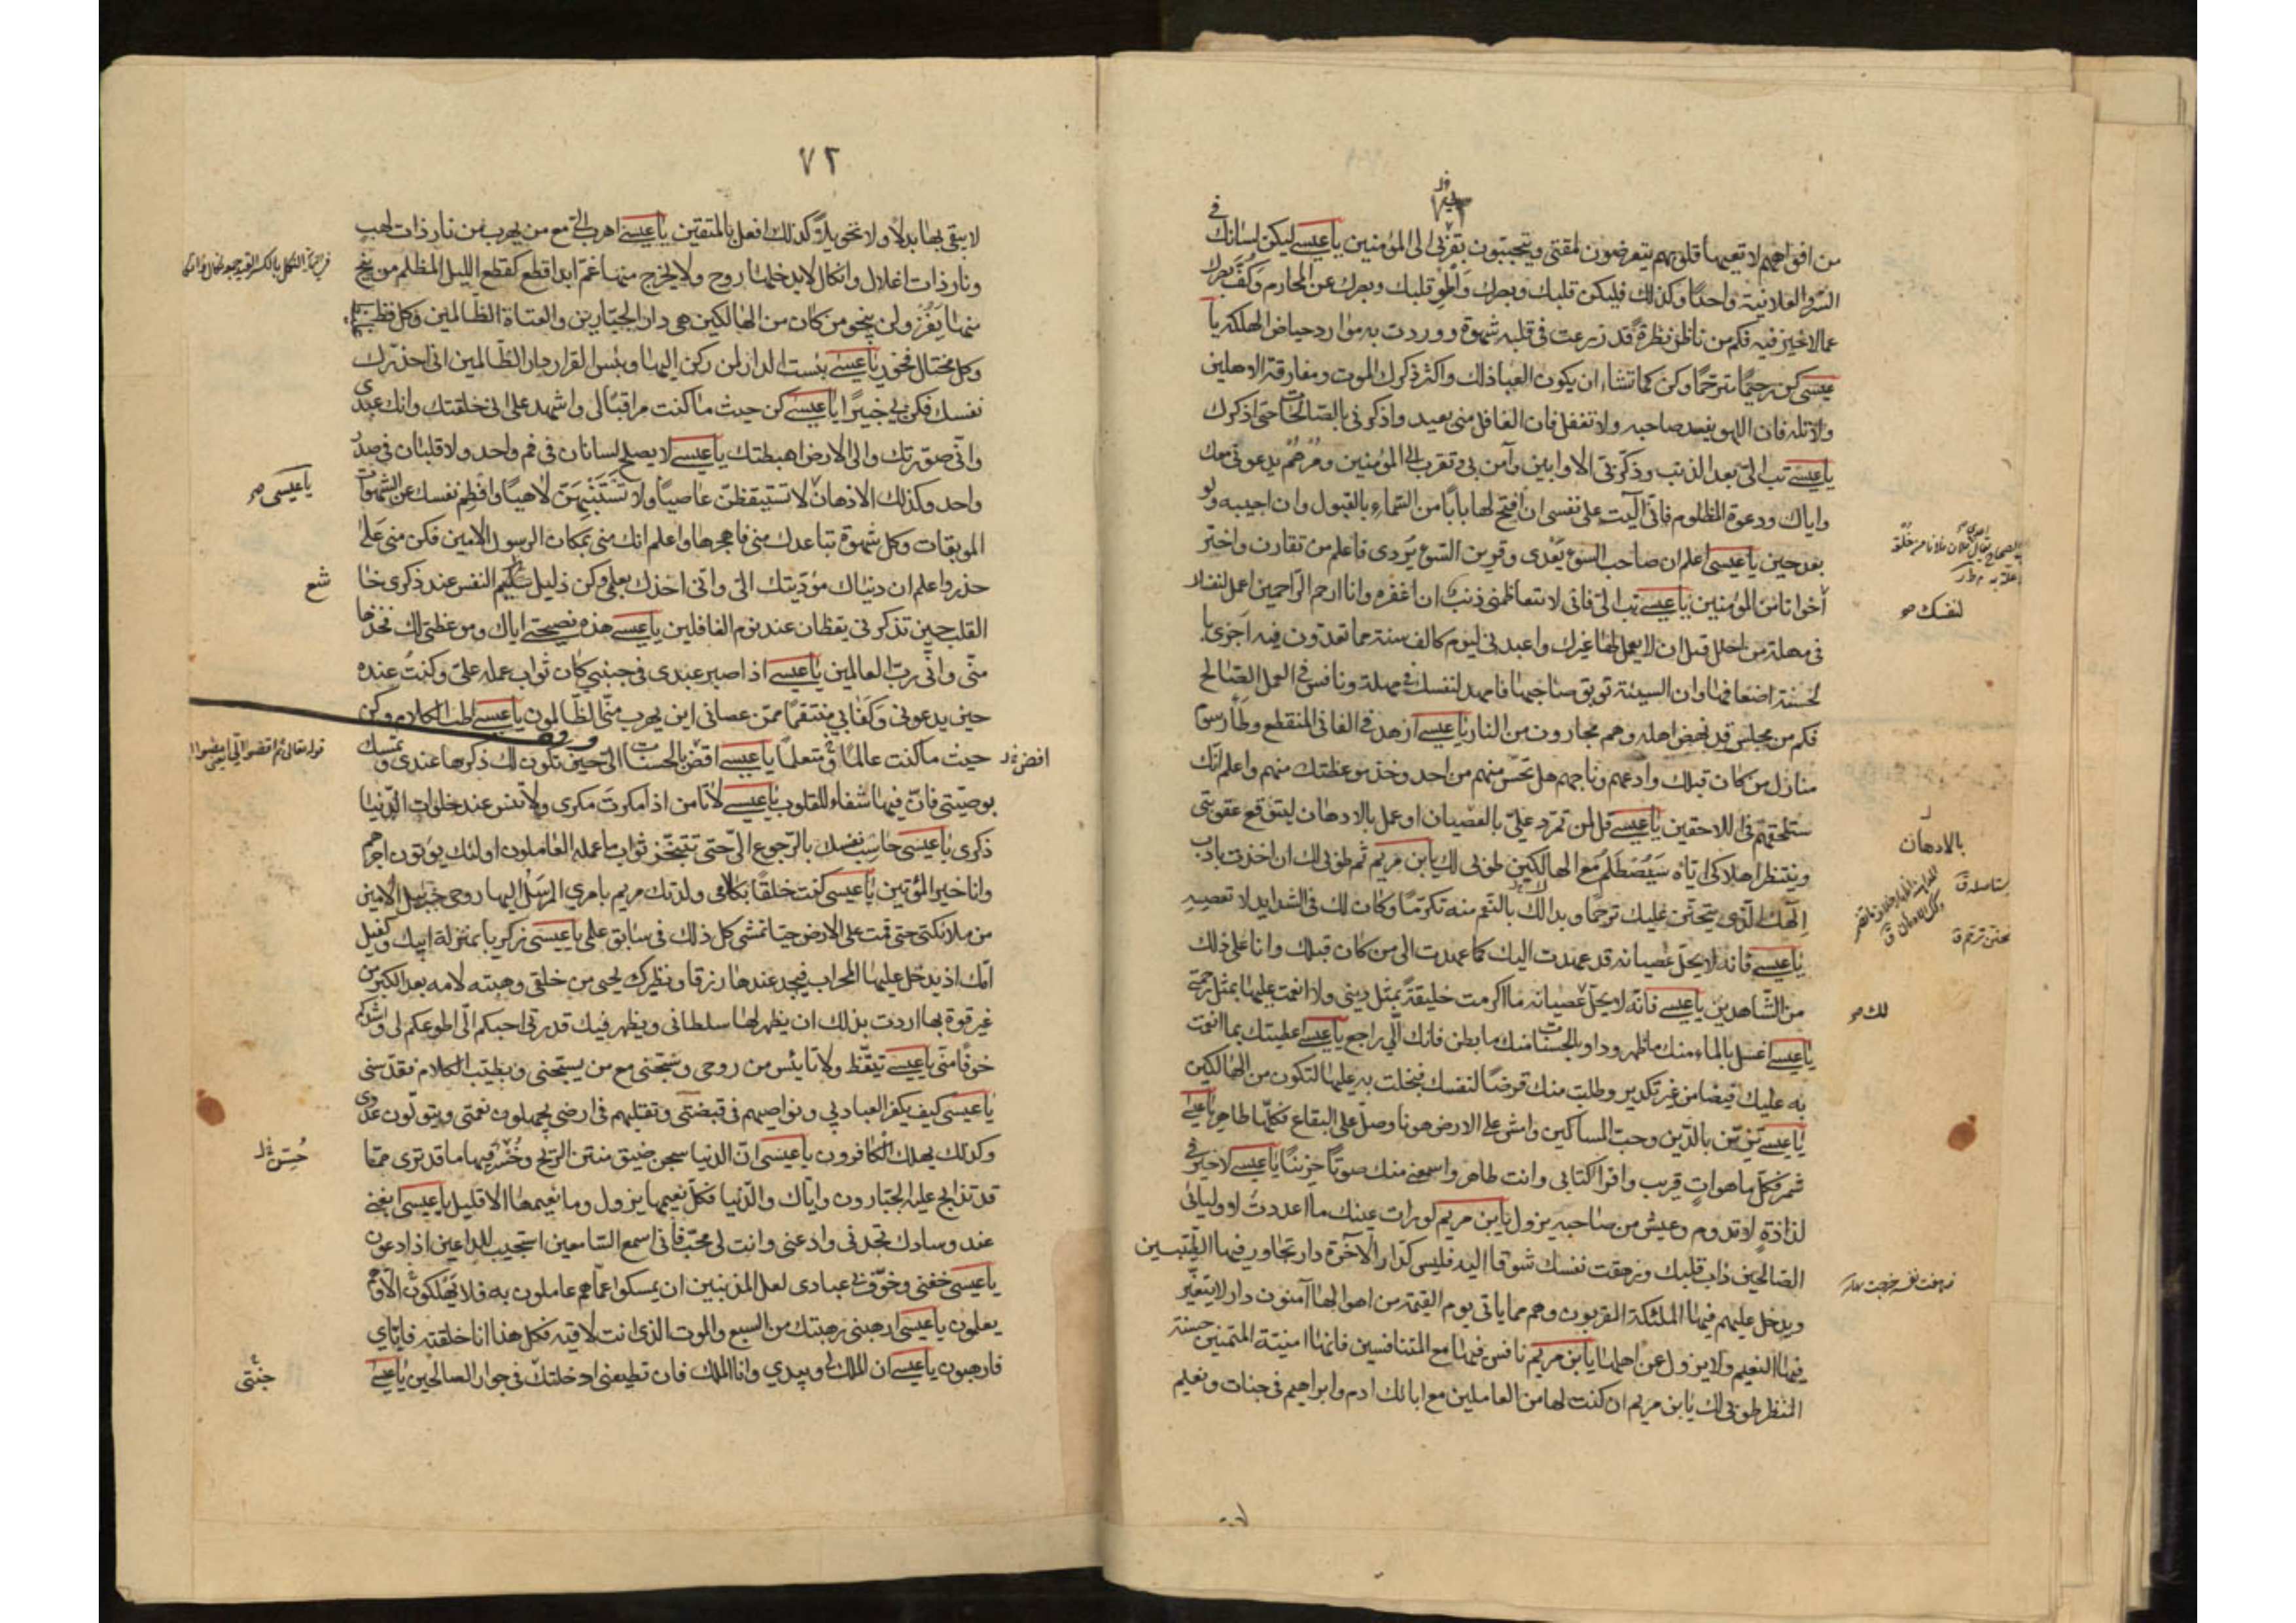 من افواههم لا تعيها قلوبهم يتعرضون لمقتى ويتحببون بقربى الى المؤمنين يا عيسى ليكن لسانك فى
السر والعلانية واحدا وكذلك فليكن قلبك وبصرك واطو قلبك وبصرك عن المحارم وكف بصرك
عما لا خير فيه فكم من ناظر نظرة قد زرعت فى قلبه شهوة ووردت به موارد حياض الهلكة يا
عيسى كن رحيما مترحما وكن كما تشاء ان يكون العباد لك واكثر ذكرك الموت ومفارقة الاهلين
ولا تله فان اللهو يفسد صاحبه ولا تغفل فان الغافل منى بعيد واذكرنى بالصالحات حتى اذكرك
يا عيسى تب الى بعد الذنب وذكر بى الاوابين وآمن بى وتقرب الى المؤمنين ومرهم يدعونى معك
واياك ودعوة المظلوم فانى آليت على نفسى ان افتح لها بابا من السماء بالقبول وان اجيبه ولو
بعد حين يا عيسى اعلم ان صاحب السوء يعدى وقرين السوء يردى فاعلم من تقارن واختر
اخوانا من المؤمنين يا عيسى تب الى فانى لا يتعاظمنى ذنب ان اغفره وانا ارحم الراحمين اعمل لنفسك
فى مهلة من اجلك قبل ان لا يعمل لها غيرك واعبدنى ليوم كالف سنة مما تعدون فيه اجزى با
لحسنة اضعافها وان السيئة توبق صاحبها فامهد لنفسك فى مهلة ونافس فى العمل الصالح
فكم من مجلس قد نهض اهله وهم مجارون من النار يا عيسى ازهد فى الفانى المنقطع وطأ رسوم
منازل من كان قبلك وادعهم وناجهم هل تحس منهم من احد وخذ موعظتك منهم واعلم انك
ستلحقهم فى اللاحقين يا عيسى قل لمن تمرد على بالعصيان وعمل بالادهان ليتوقع عقوبتى
وينتظر اهلاكى اياه سيصطلم مع الهالكين طوبى لك يابن مريم ثم طوبى لك ان اخذت بادب
الهك الذى يتحنن عليك ترحما وبدأك بالنعم منه تكرما وكان لك فى الشدايد لا تعصيه
يا عيسى فانه لا يحل عصيانه قد عهدت اليك كما عهدت الى من كان قبلك وانا على ذلك
من الشاهدين يا عيسى ما اكرمت خليقة بمثل دينى ولا انعمت عليها بمثل رحمتى
يا عيسى اغسل بالماء منك ما ظهر وداو بالحسنات منك ما بطن فانك الى راجع يا عيسى اعطيتك بما انعمت
به عليك فيضا من غير تكدير وطلبت منك قرضا لنفسك فبخلت به عليها لتكون من الهالكين
يا عيسى تزين بالدين وحب المساكين وامش على الارض هونا وصل على البقاع فكلها طاهر يا عيسى
شمر فكل ما هو آت قريب واقرا كتابى وانت طاهر واسمعنى منك صوتا حزينا يا عيسى لا خير فى
لذاذة لا تدوم وعيش من صاحبه يزول يابن مريم لو رات عينك ما اعددت لاوليائى
الصالحين ذاب قلبك وزهقت نفسك شوقا اليه فليس كدار الآخرة دار تجاور فيها الطيبين
ويدخل عليهم فيها الملئكة المقربون وهم مما ياتى يوم القيمة من اهوالها آمنون دار لا يتغير
فيها النعيم ولا يزول عن اهلها يابن مريم نافس فيها مع المتنافسين فانها امنية المتمنين حسنة
المنظر طوبى لك يابن مريم ان كنت لها من العاملين مع ابائك ادم وابراهيم فى جنات ونعيم
لنفسك
بالادهان
لك
٧٢
لا تبغى بها بدلا ولا تحويلا كذلك افعل بالمتقين يا عيسى اهرب الى مع من يهرب من نار ذات لهب
ونار ذات اغلال وانكال لا يدخلها روح ولا يخرج منها غم ابدا قطع كقطع الليل المظلم من ينج
منها يفز ولن ينجو من كان من الهالكين هى دار الجبارين والعتاة الظالمين وكل فظ غليظ
وكل مختال فخور يا عيسى بئست الدار لمن ركن اليها وبئس القرار دار الظالمين انى احذرك
نفسك فكن بى خبيرا يا عيسى كن حيث ما كنت مراقبا لى واشهد على انى خلقتك وانك عبدى
وانى صورتك والى الارض اهبطتك يا عيسى لا يصلح لسانان فى فم واحد ولا قلبان فى صدر
واحد وكذلك الاذهان لا تستيقظن عاصيا ولا تستنبهن لاهيا وافطم نفسك عن الشهوات
الموبقات وكل شهوة تباعدك منى فاهجرها واعلم انك منى بمكان الرسول الامين فكن منى على
حذر واعلم ان دنياك مؤديتك الى وانى اخذك بعلمى وكن ذليل النفس عند ذكرى خا
شع
القلب حين تذكرنى يقظان عند نوم الغافلين يا عيسى هذه نصيحتى اياك وموعظتى لك فخذها
منى وانى رب العالمين يا عيسى اذا صبر عبدى فى جنبى كان ثواب عمله على وكنت عنده
حين يدعونى وكفى بى منتقما ممن عصانى اين يهرب منى الظالمون يا عيسى اطب الكلام وكن
حيث ما كنت عالما ومتعلما يا عيسى افض بالحسنات الى حتى تكون لك ذكرها عندى وتمسك
بوصيتى فان فيها شفاء للقلوب يا عيسى لا تامن اذا مكرت مكرى ولا تنس عند خلوات الدنيا
ذكرى يا عيسى حاسب نفسك بالرجوع الى حتى تتنجز ثواب ما عمله العاملون اولئك يؤتون اجرهم
وانا خير المؤتين يا عيسى كنت خلقا بكلامى ولدتك مريم بامرى المرسل اليها روحى جبرئيل الامين
من ملائكتى حتى قمت على الارض حيا تمشى كل ذلك فى سابق علمى يا عيسى زكريا بمنزلة ابيك وكفيل
امك اذ يدخل عليها المحراب فيجد عندها رزقا ونظيرك يحيى من خلقى وهبته لامه بعد الكبر من
غير قوة بها اردت بذلك ان يظهر لها سلطانى ويظهر فيك قدرتى احبكم الى اطوعكم لى واشدكم
خوفا منى يا عيسى تيقظ ولا تايئس من روحى وسبحنى مع من يسبحنى وبطيب الكلام فقدسنى
يا عيسى كيف يكفر العباد بى ونواصيهم فى قبضتى وتقلبهم فى ارضى يجهلون نعمتى ويتولون عدوى
وكذلك يهلك الكافرون يا عيسى ان الدنيا سجن ضيق منتن الريح وحسن فيها ما قد ترى مما
قد تذابح عليه الجبارون واياك والدنيا فكل نعيمها يزول وما نعيمها الا قليل يا عيسى ابغنى
عند وسادك تجدنى وادعنى وانت لى محب فانى اسمع السامعين استجيب للداعين اذا دعونى
يا عيسى خفنى وخوف بى عبادى لعل المذنبين ان يمسكوا عما هم عاملون به فلا يهلكوا الا وهم
يعلمون يا عيسى ارهبنى رهبتك من السبع والموت الذى انت لاقيه فكل هذا انا خلقته فاياى
فارهبون يا عيسى ان الملك لى وبيدى وانا الملك فان تطعنى ادخلتك فى جوار الصالحين يا عيسى
يا عيسى
جنتى